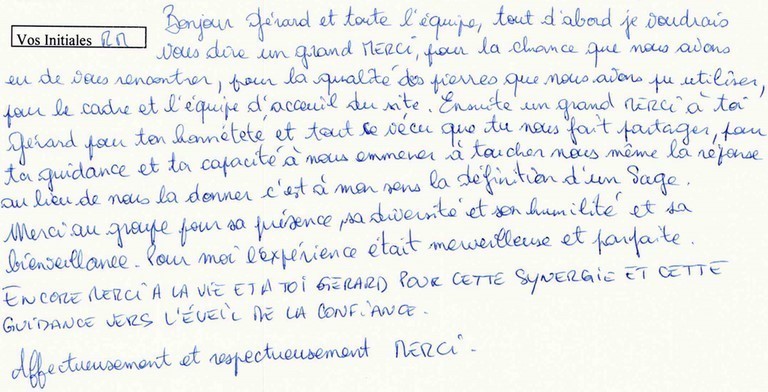 Bonjour Gérard et toute l'équipe, tout d'abord je voudrais
Vos Initiales RM vous dire un grand MERCI, pour la chance que nous avons
eu de vous rencontrer, pour la qualité des pierres que nous avons pu utiliser,
pour le cadre et l'équipe d'acceuil du site. Ensuite un grand MERCI à toi
Gérard pour ton honnêteté et tout le vécu que tu nous fait partager, pour
ta guidance et ta capacité à nous emmener à toucher nous même la réponse
au lieu de nous la donner c'est à mon sens la définition d'un Sage.
Merci au groupe pour sa présence, sa diversité et son humilité et sa
bienveillance. Pour moi l'expérience était merveilleuse et parfaite.
ENCORE MERCI A LA VIE ET A TOI GERARD POUR CETTE SYNERGIE ET CETTE
GUIDANCE VERS L'ÉVEIL DE LA CONFIANCE.
Affectueusement et respectueusement MERCI.